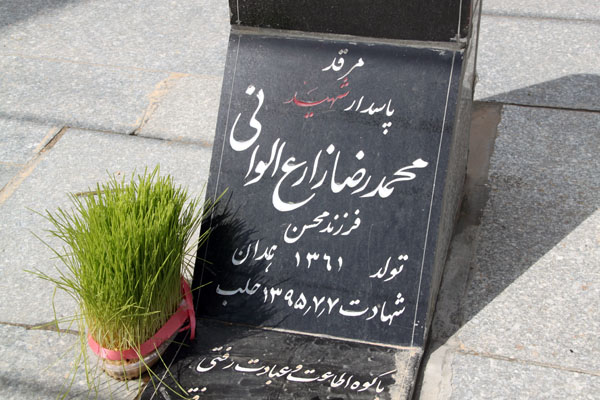 مرقد
پاسدار شهید
محمدرضا زارع الوانی
فرزند محسن
تولد ۱۳۶۱ همدان
شهادت ۱۳۹۵٫۷٫۷ حلب
با کوه اطاعت و عبادت رفتی